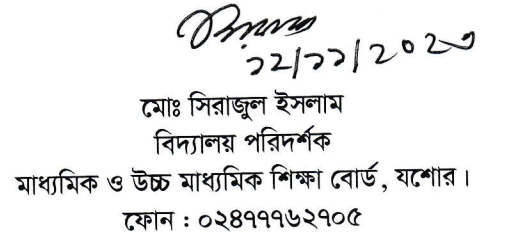 ২২/১১/২০২৩
মোঃ সিরাজুল ইসলাম
বিদ্যালয় পরিদর্শক
মাধ্যমিক ও উচ্চ মাধ্যমিক শিক্ষা বোর্ড, যশোর।
ফোন : ০২৪৭৭৭৬২৭০৫